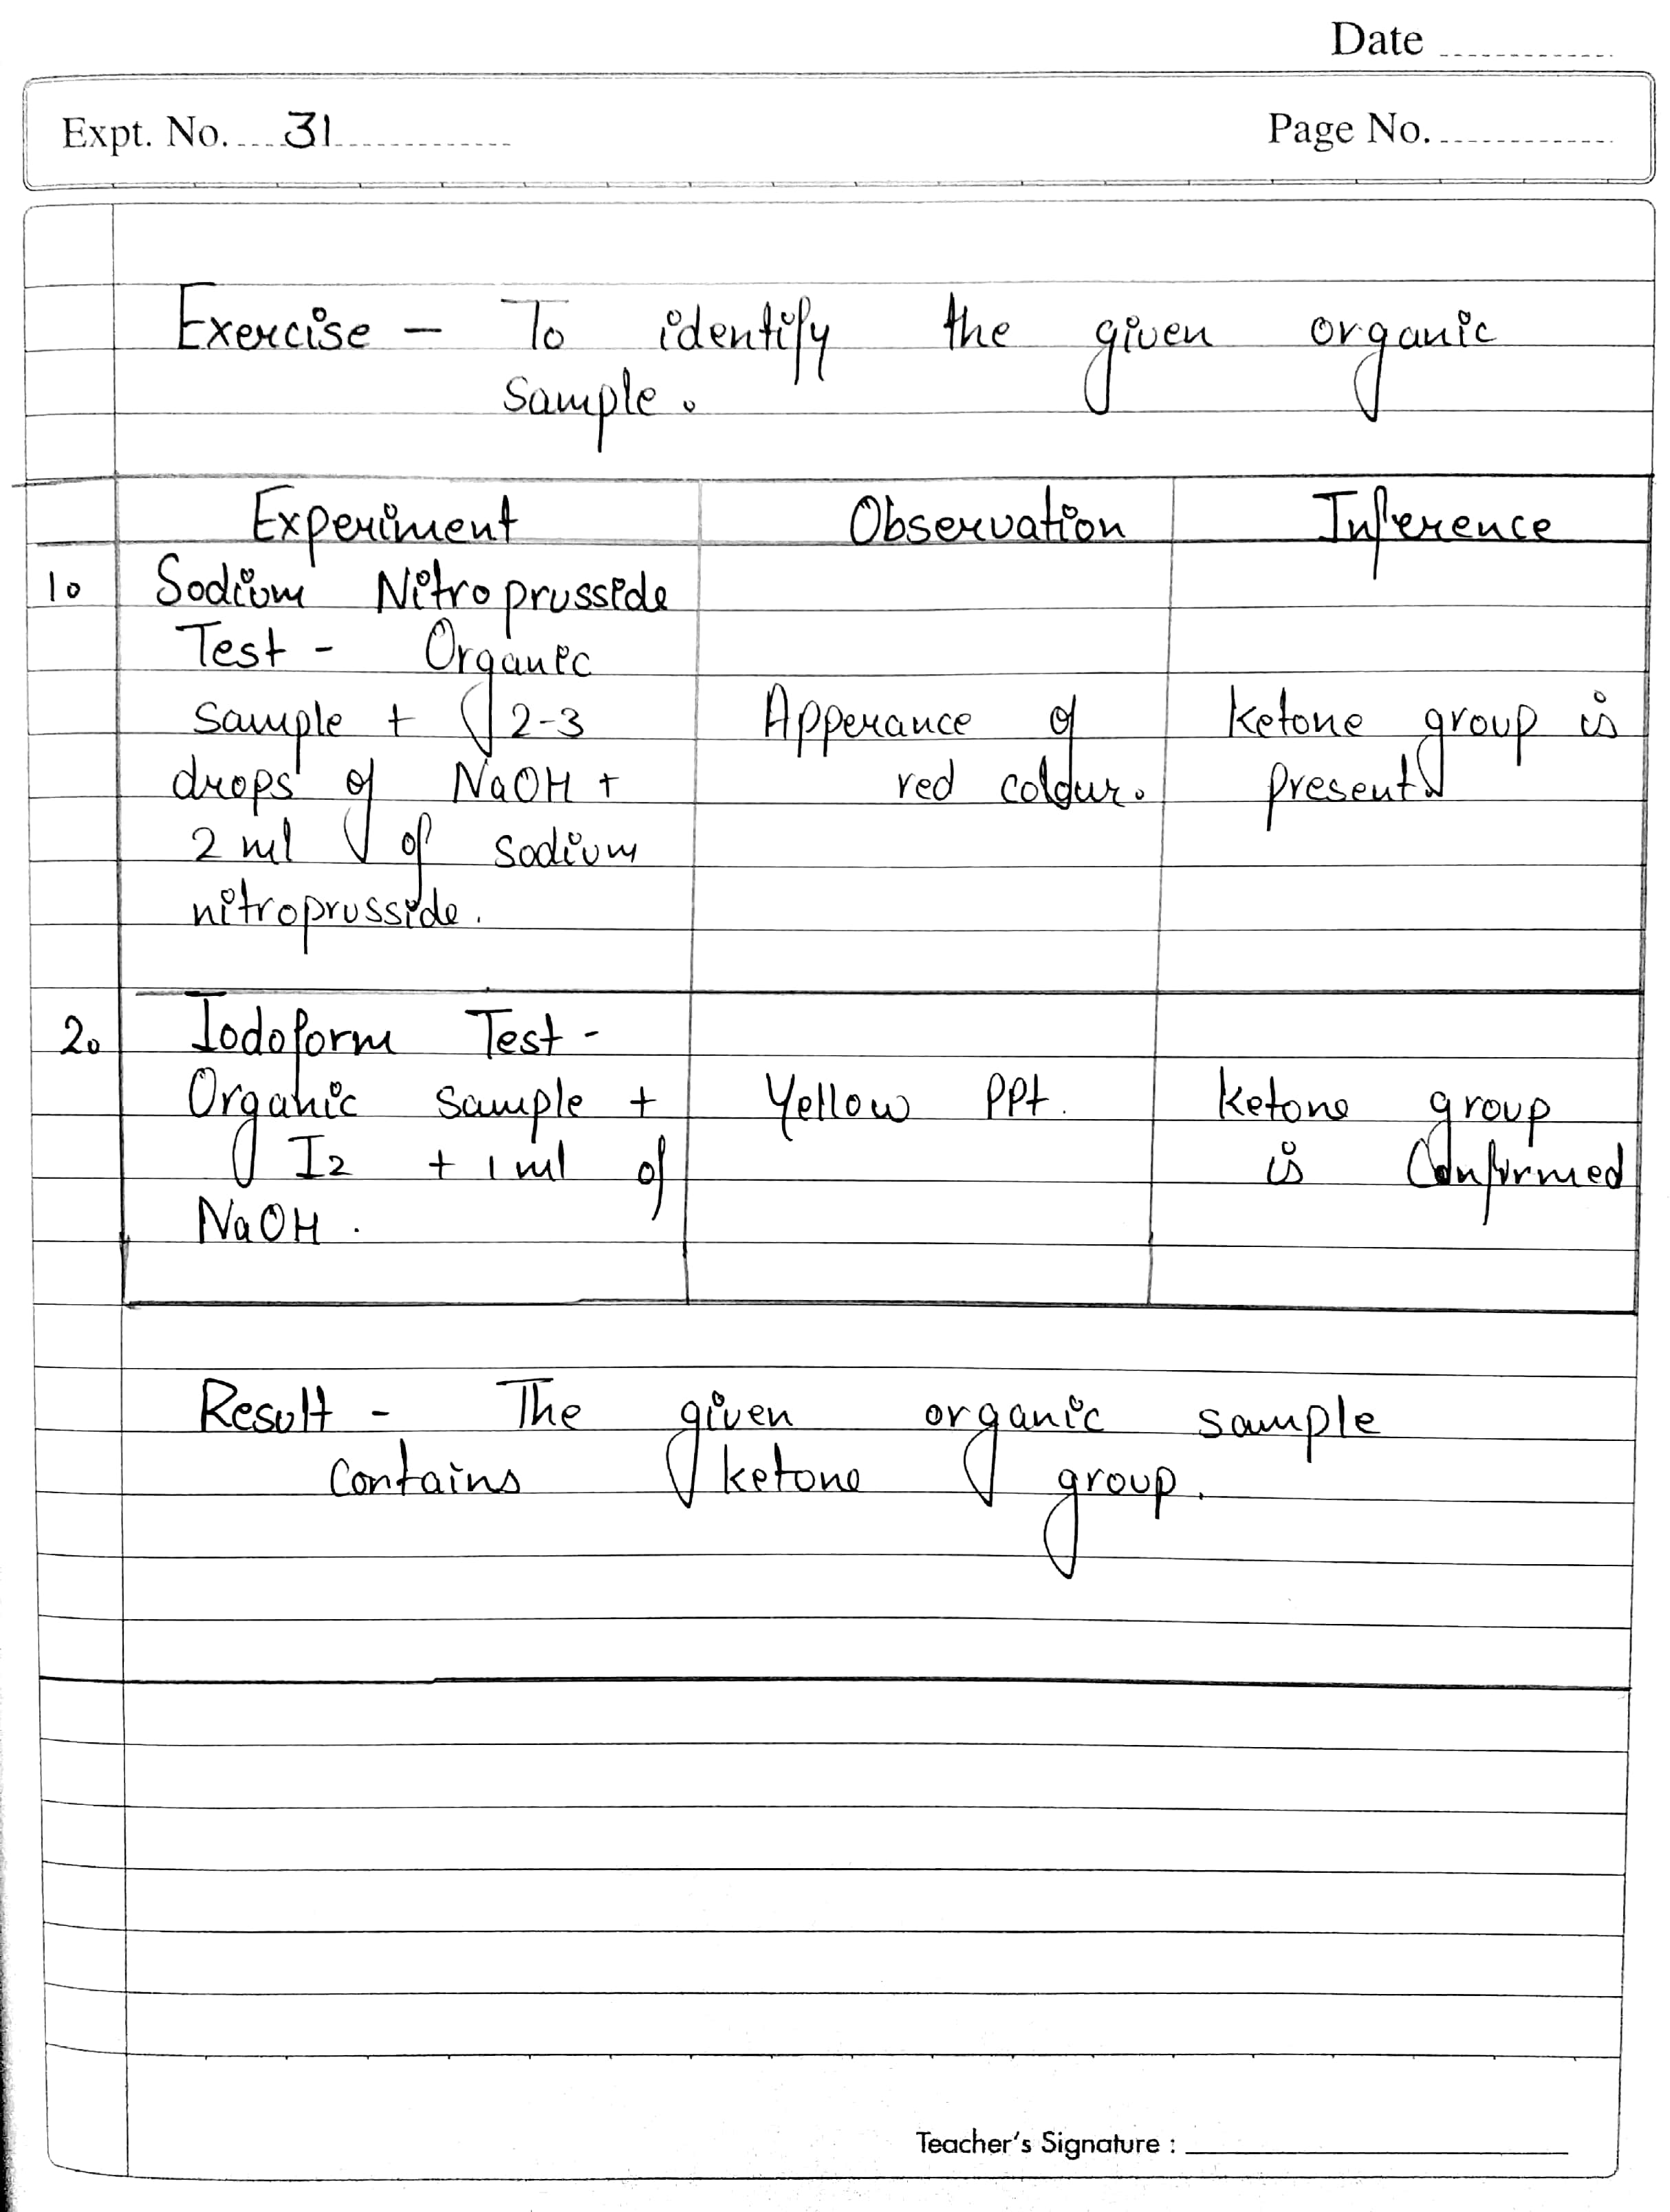 Date
Expt. No. 31
Page No.
Exercise - To identify the given organic
sample.
Experiment Observation Inference
1. Sodium Nitroprusside
Test - Organic
sample + 2-3 Apperance of ketone group is
drops of NaOH + red colour. present.
2 ml of sodium
nitroprusside.
2. Iodoform Test -
Organic sample + Yellow PPt. ketone group
I2 + 1 ml of is Confirmed
NaOH.
Result - The given organic sample
contains ketone group.
Teacher's Signature :